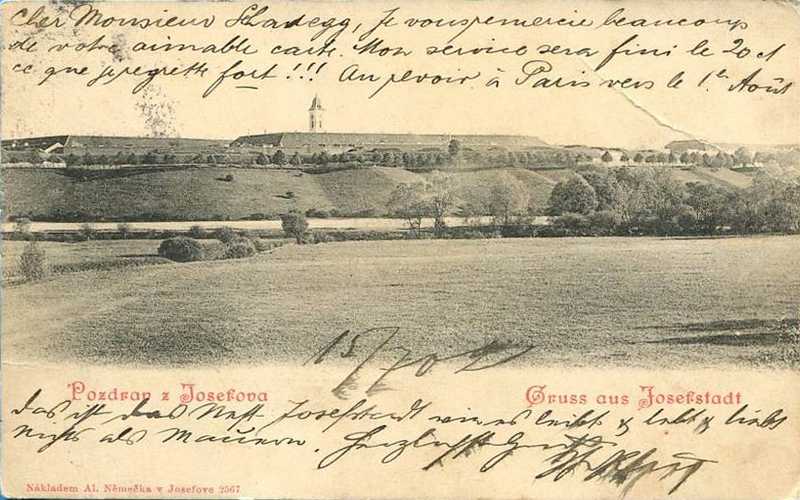 Cher Monsieur Schadegg, Je vous remercie beaucoup
de votre aimable carte. Mon service sera fini le 20 ct
ce que je regrette fort!!! Au revoir à Paris vers le 1er Août
15/7 02
Pozdrav z Josefova
Gruss aus Josefstadt
das ist das Nest Josefstadt wie es leibt & lebt & liebt
nichts als Mauern. Herzlichst
Nákladem Al. Němečka v Josefově 2567